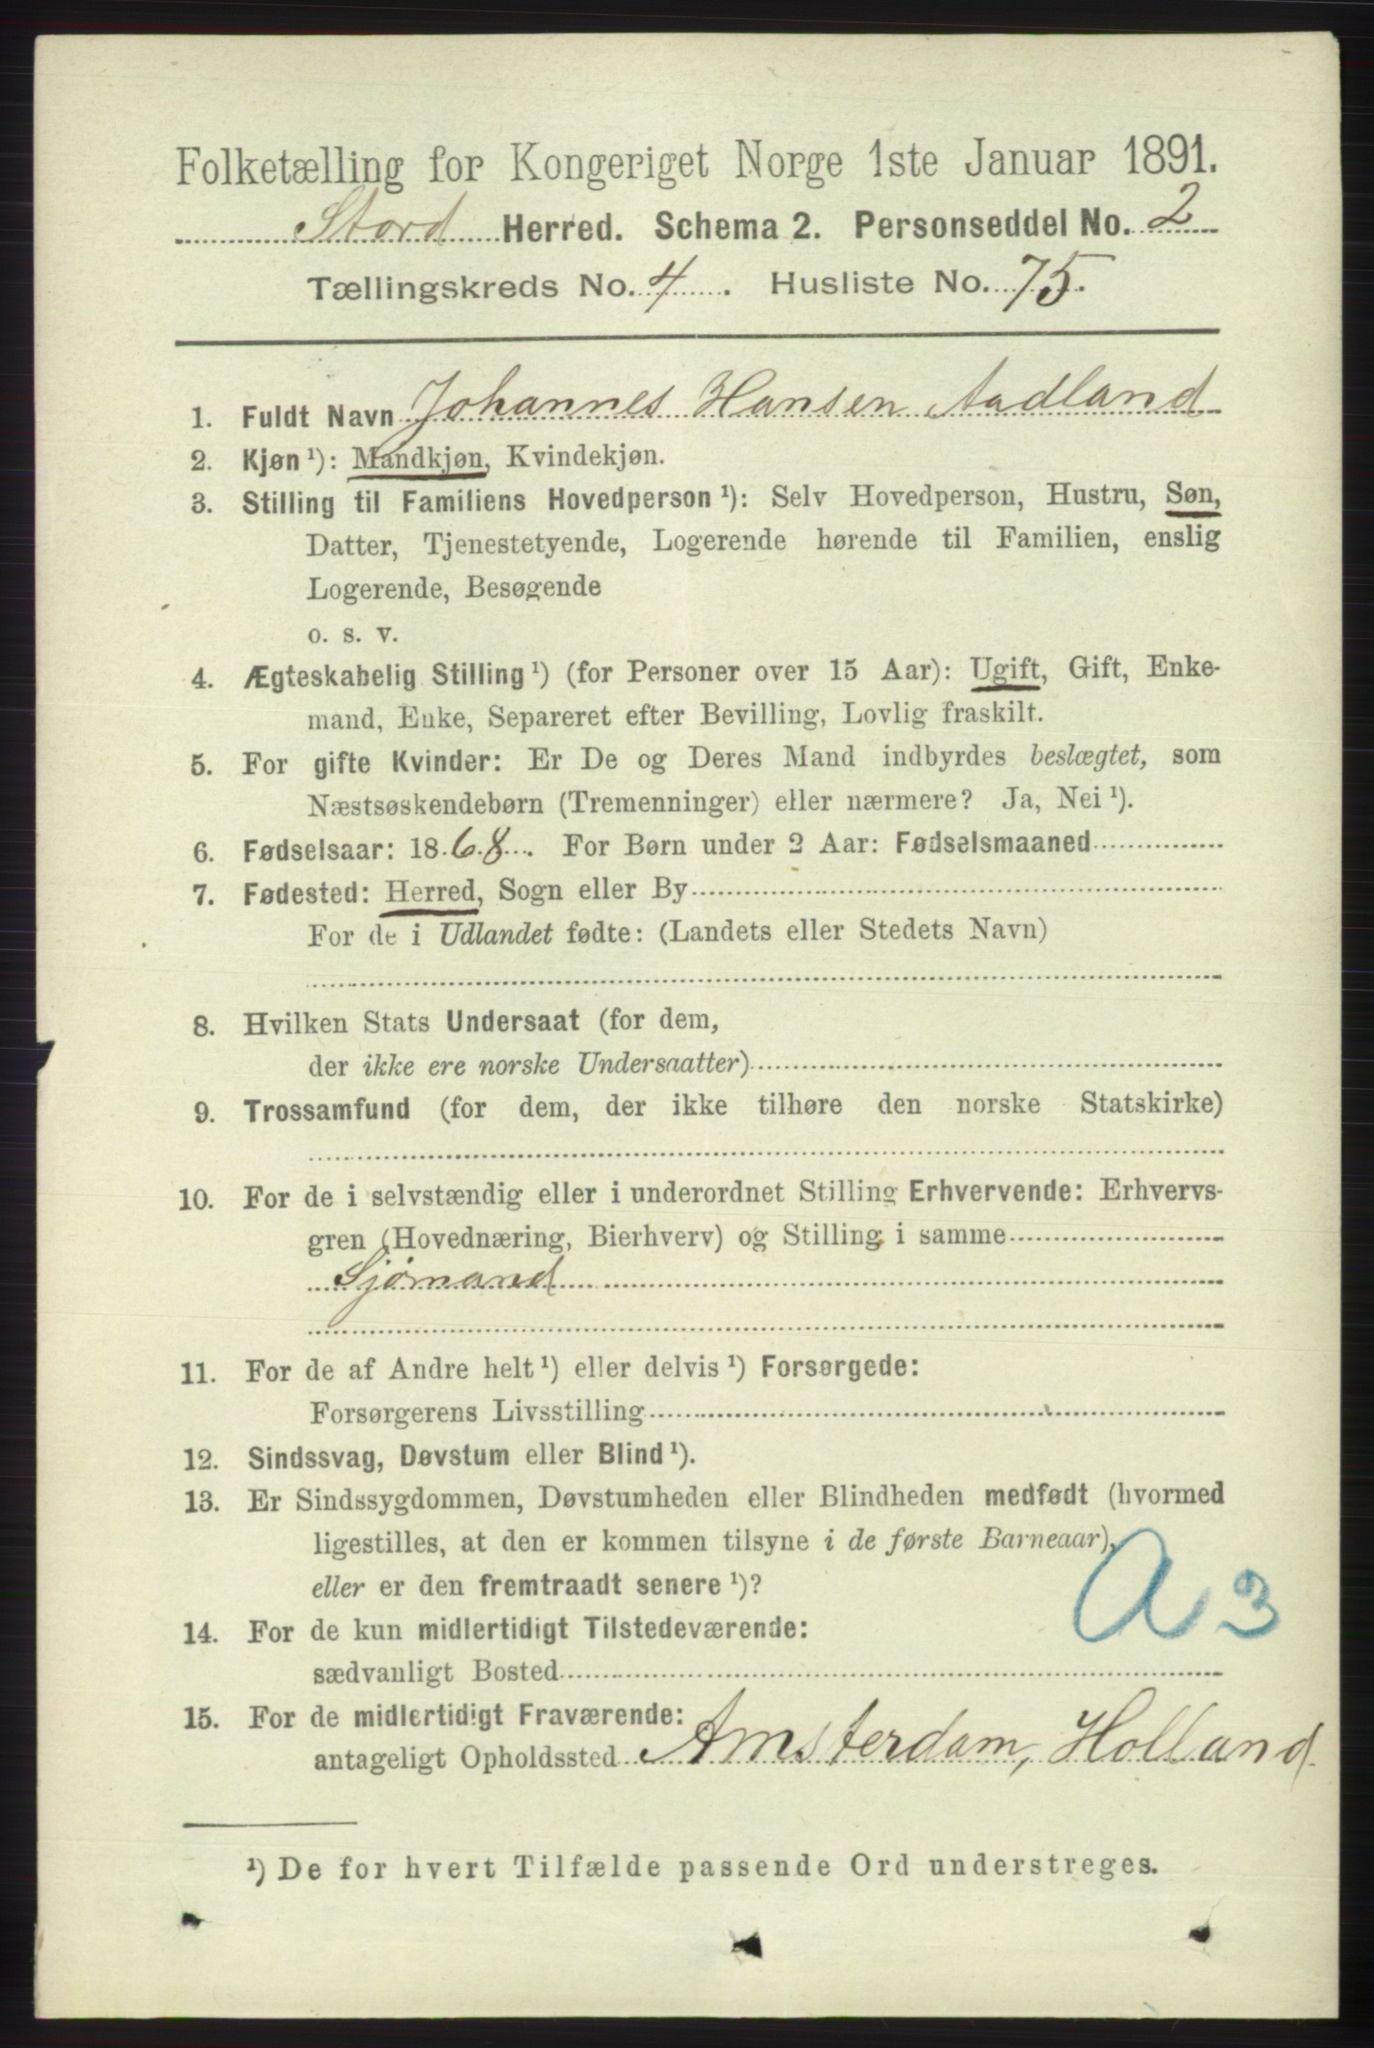 Folketælling for Kongeriget Norge 1ste Januar 1891.
Stord Herred. Schema 2. Personseddel No. 2
Tællingskreds No. 4. Husliste No. 75.
1. Fuldt Navn Johannes Hansen Aadland
2. Kjøn ¹): Mandkjøn, Kvindekjøn.
3. Stilling til Familiens Hovedperson ¹): Selv Hovedperson, Hustru, Søn,
Datter, Tjenestetyende, Logerende hørende til Familien, enslig
Logerende, Besøgende
o. s. v.
4. Ægteskabelig Stilling ¹) (for Personer over 15 Aar): Ugift, Gift, Enke-
mand, Enke, Separeret efter Bevilling, Lovlig fraskilt.
5. For gifte Kvinder: Er De og Deres Mand indbyrdes beslægtet, som
Næstsøskendebørn (Tremenninger) eller nærmere? Ja, Nei ¹).
6. Fødselsaar: 1868. For Børn under 2 Aar: Fødselsmaaned
7. Fødested: Herred, Sogn eller By
For de i Udlandet fødte: (Landets eller Stedets Navn)
8. Hvilken Stats Undersaat (for dem,
der ikke ere norske Undersaatter)
9. Trossamfund (for dem, der ikke tilhøre den norske Statskirke)
10. For de i selvstændig eller i underordnet Stilling Erhvervende: Erhvervs-
gren (Hovednæring, Bierhverv) og Stilling i samme
Sjømand
11. For de af Andre helt ¹) eller delvis ¹) Forsørgede:
Forsørgerens Livsstilling
12. Sindssvag, Døvstum eller Blind ¹).
13. Er Sindssygdommen, Døvstumheden eller Blindheden medfødt (hvormed
ligestilles, at den er kommen tilsyne i de første Barneaar),
eller er den fremtraadt senere ¹)?
A 3
14. For de kun midlertidigt Tilstedeværende:
sædvanligt Bosted
15. For de midlertidigt Fraværende:
antageligt Opholdssted Amsterdam, Holland.
¹) De for hvert Tilfælde passende Ord understreges.